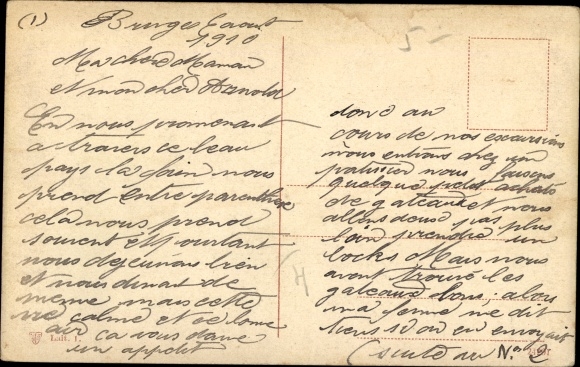 (1) Bruges 6 aout
1910
Ma chere Maman
et mon cher Arnold
En nous promenant
a travers ce beau
pays la faim nous
prend entre parenthese
celà nous prend
souvent et pourtant
nous dejeunons bien
et nous dinons de
meme mais cette
vie calme et ce bon
air ca vous donne
un appetit
5
donc au
cours de nos excursions
nous entrons chez un
patissier nous faisons
quelque petits achats
de gateaux et nous
allons deux pas plus
loin prendre un
bocks Mais nous
avont trouvé les
gateaux bons; alors
ma femme me dit
tiens si on en envoyait
(suite au No. 2